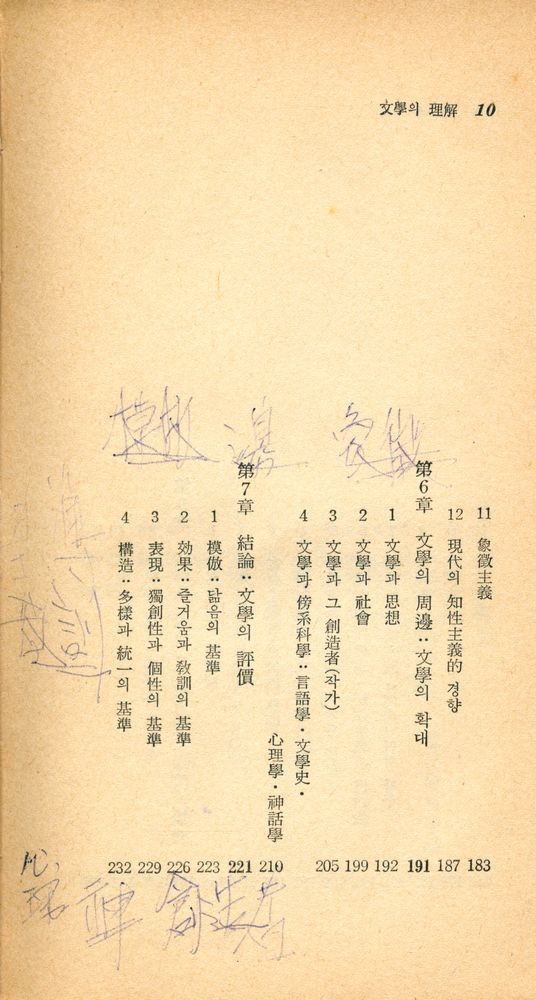 文學의 理解 10
11 象徵主義 183
12 現代의 知性主義的 경향 187
第6章 文學의 周邊：文學의 확대 191
1 文學과 思想 192
2 文學과 社會 199
3 文學과 그 創造者(작가) 205
4 文學과 傍系科學：言語學·文學史·
心理學·神話學 210
第7章 結論：文學의 評價 221
1 模倣：닮음의 基準 223
2 効果：즐거움과 敎訓의 基準 226
3 表現：獨創性과 個性의 基準 229
4 構造：多樣과 統一의 基準 232
神 創造者